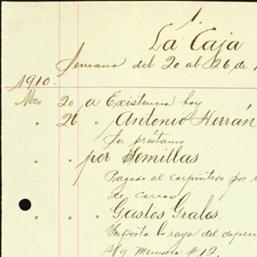 1.
La Caja
Semana del 20 al 26 de
1910.
Mzo 20 a Existencia hoy
" 26 " Antonio Herrán
Su préstamo
" " por Semillas
Pagado al carpintero por
de carros
" " " Gastos Grales.
Importe la raya del depen
s/g Memoria #12.